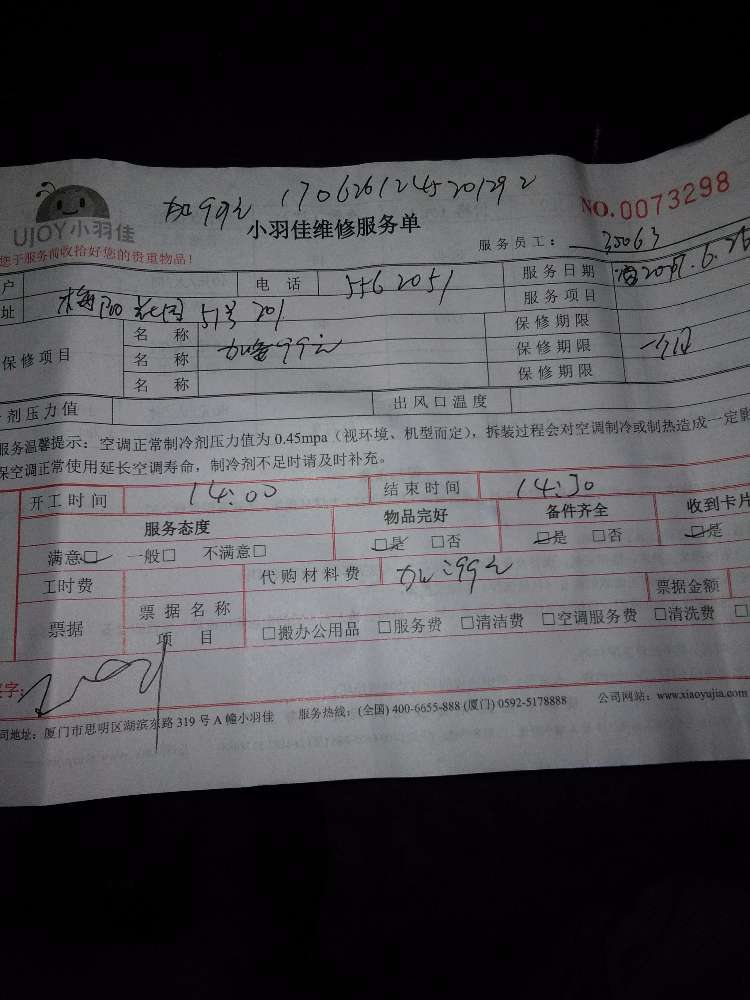 加99元 1706261245201292
UJOY小羽佳
小羽佳维修服务单
NO.0073298
您于服务前收拾好您的贵重物品！
服务员工： 35063
户 电 话 5562051 服务日期
址 51号 201 服务项目
保修项目
名 称 保修期限
名 称 加 99元 保修期限 一个月
名 称 保修期限
剂压力值 出风口温度
服务温馨提示：空调正常制冷剂压力值为 0.45mpa（视环境、机型而定），拆装过程会对空调制冷或制热造成一定影
保空调正常使用延长空调寿命，制冷剂不足时请及时补充。
开工时间 14:00 结束时间 14:30
服务态度 物品完好 备件齐全 收到卡片
满意□ 一般□ 不满意□ □是 □否 □是 □否 □是
工时费 代购材料费 加 99元
票据 票据名称 票据金额
项 目 □搬办公用品 □服务费 □清洁费 □空调服务费 □清洗费 □
签字：
司地址：厦门市思明区湖滨东路 319 号 A 幢小羽佳 服务热线：(全国) 400-6655-888 (厦门) 0592-5178888 公司网站：www.xiaoyujia.com